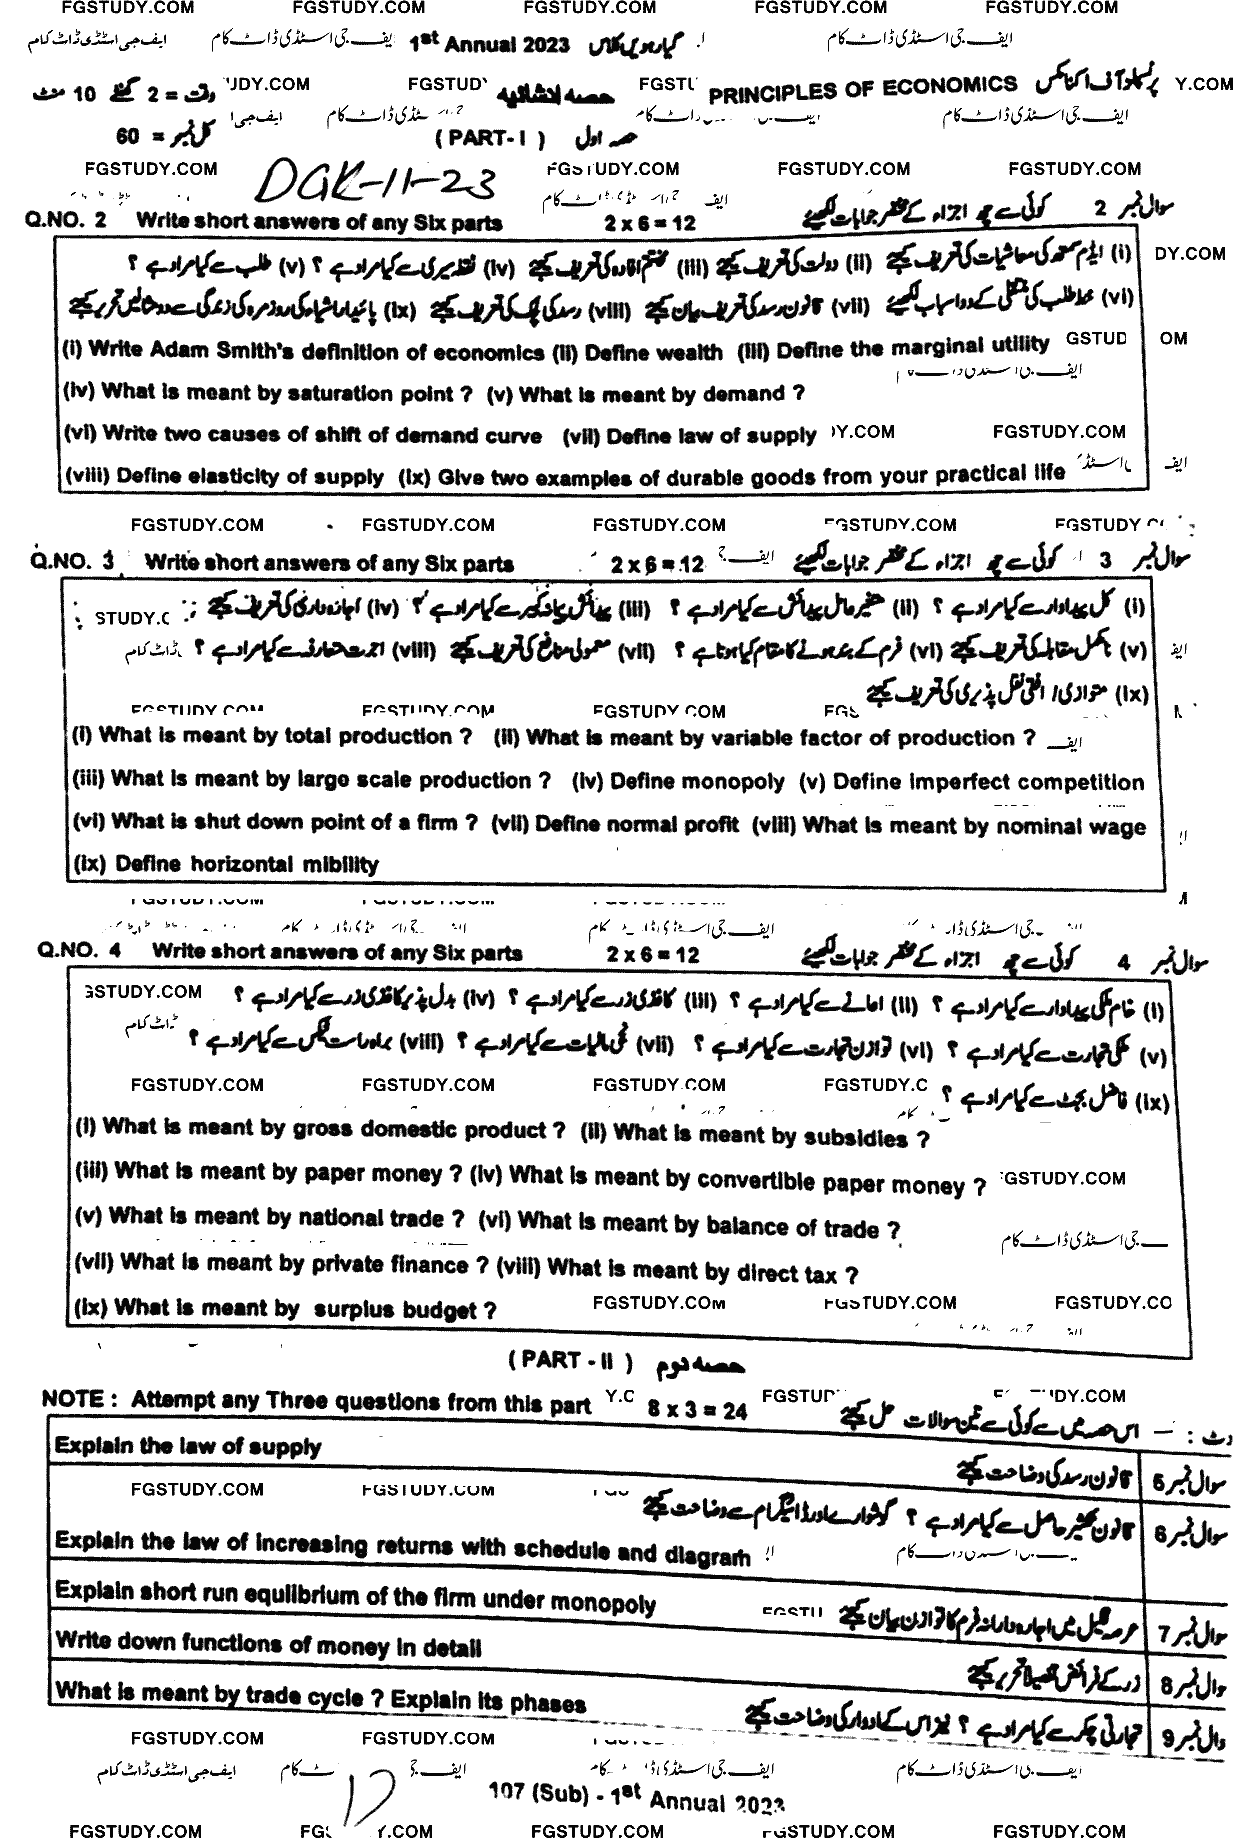 FGSTUDY.COM FGSTUDY.COM FGSTUDY.COM FGSTUDY.COM FGSTUDY.COM
ایف جی اسٹڈی ڈاٹ کام 1st Annual 2023 گیارہویں کلاس ایف جی اسٹڈی ڈاٹ کام
وقت = 2 گھنٹے 10 منٹ حصہ انشائیہ PRINCIPLES OF ECONOMICS پرنسپلز آف اکنامکس
کل نمبر = 60 (PART-I) حصہ اول
FGSTUDY.COM DGK-11-23 FGSTUDY.COM FGSTUDY.COM FGSTUDY.COM
Q.NO. 2 Write short answers of any Six parts 2 x 6 = 12 سوال نمبر 2 کوئی سے چھ اجزاء کے مختصر جوابات لکھیئے
(i) ایڈم سمتھ کی معاشیات کی تعریف کیجئے (ii) دولت کی تعریف کیجئے (iii) مختتم افادہ کی تعریف کیجئے (iv) نقطہ سیری سے کیا مراد ہے ؟ (v) طلب سے کیا مراد ہے ؟
(vi) خط طلب کی منتقلی کے دو اسباب لکھیئے (vii) قانون رسد کی تعریف بیان کیجئے (viii) رسد کی لچک کی تعریف کیجئے (ix) پائیدار اشیاء کی روزمرہ کی زندگی سے دو مثالیں تحریر کیجئے
(i) Write Adam Smith's definition of economics (ii) Define wealth (iii) Define the marginal utility
(iv) What is meant by saturation point ? (v) What is meant by demand ?
(vi) Write two causes of shift of demand curve (vii) Define law of supply
(viii) Define elasticity of supply (ix) Give two examples of durable goods from your practical life
FGSTUDY.COM FGSTUDY.COM FGSTUDY.COM FGSTUDY.COM
Q.NO. 3 Write short answers of any Six parts 2 x 6 = 12 سوال نمبر 3 کوئی سے چھ اجزاء کے مختصر جوابات لکھیئے
(i) کل پیداوار سے کیا مراد ہے ؟ (ii) متغیر عامل پیدائش سے کیا مراد ہے ؟ (iii) پیدائش بپیمانہ کبیر سے کیا مراد ہے ؟ (iv) اجارہ داری کی تعریف کیجئے
(v) نامکمل مقابلہ کی تعریف کیجئے (vi) فرم کے بند ہونے کا مقام کیا ہوتا ہے ؟ (vii) معمولی منافع کی تعریف کیجئے (viii) اجرت متعارفہ سے کیا مراد ہے ؟
(ix) متوازی/ افقی نقل پذیری کی تعریف کیجئے
(i) What is meant by total production ? (ii) What is meant by variable factor of production ?
(iii) What is meant by large scale production ? (iv) Define monopoly (v) Define imperfect competition
(vi) What is shut down point of a firm ? (vii) Define normal profit (viii) What is meant by nominal wage
(ix) Define horizontal mibility
Q.NO. 4 Write short answers of any Six parts 2 x 6 = 12 سوال نمبر 4 کوئی سے چھ اجزاء کے مختصر جوابات لکھیئے
(i) خام ملکی پیداوار سے کیا مراد ہے ؟ (ii) اعانے سے کیا مراد ہے ؟ (iii) کاغذی زر سے کیا مراد ہے ؟ (iv) بدل پذیر کاغذی زر سے کیا مراد ہے ؟
(v) ملکی تجارت سے کیا مراد ہے ؟ (vi) توازن تجارت سے کیا مراد ہے ؟ (vii) نجی مالیات سے کیا مراد ہے ؟ (viii) براہ راست ٹیکس سے کیا مراد ہے ؟
FGSTUDY.COM FGSTUDY.COM FGSTUDY.COM
(ix) فاضل بجٹ سے کیا مراد ہے ؟
(i) What is meant by gross domestic product ? (ii) What is meant by subsidies ?
(iii) What is meant by paper money ? (iv) What is meant by convertible paper money ?
(v) What is meant by national trade ? (vi) What is meant by balance of trade ?
(vii) What is meant by private finance ? (viii) What is meant by direct tax ?
(ix) What is meant by surplus budget ?
(PART - II) حصہ دوم
NOTE : Attempt any Three questions from this part 8 x 3 = 24 اس حصہ میں سے کوئی سے تین سوالات حل کیجئے
Explain the law of supply
سوال نمبر 5 قانون رسد کی وضاحت کیجئے
سوال نمبر 6 قانون تکثیر حاصل سے کیا مراد ہے ؟ گوشوارے اور ڈائیگرام سے وضاحت کیجئے
Explain the law of increasing returns with schedule and diagram
Explain short run equlibrium of the firm under monopoly
سوال نمبر 7 عرصہ قلیل میں اجارہ دارانہ فرم کا توازن بیان کیجئے
Write down functions of money in detail
وال نمبر 8 زر کے فرائض تفصیلاً تحریر کیجئے
What is meant by trade cycle ? Explain its phases
وال نمبر 9 تجارتی چکر سے کیا مراد ہے ؟ نیز اس کے ادوار کی وضاحت کیجئے
FGSTUDY.COM FGSTUDY.COM FGSTUDY.COM FGSTUDY.COM
107 (Sub) - 1st Annual 2023
FGSTUDY.COM FGSTUDY.COM FGSTUDY.COM FGSTUDY.COM